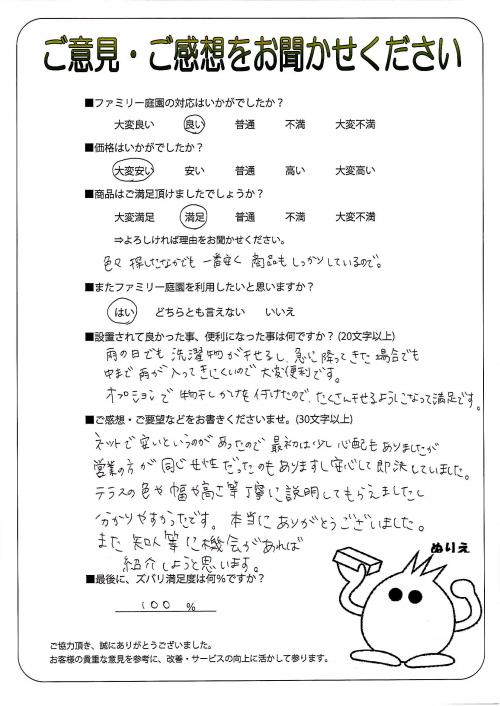 ご意見・ご感想をお聞かせください
■ファミリー庭園の対応はいかがでしたか？
大変良い 良い 普通 不満 大変不満
■価格はいかがでしたか？
大変安い 安い 普通 高い 大変高い
■商品はご満足頂けましたでしょうか？
大変満足 満足 普通 不満 大変不満
⇒よろしければ理由をお聞かせください。
色々探したなかでも一番安く商品もしっかりしているので。
■またファミリー庭園を利用したいと思いますか？
はい どちらとも言えない いいえ
■設置されて良かった事、便利になった事は何ですか？(20文字以上)
雨の日でも洗濯物が干せるし、急に降ってきた場合でも
中まで雨が入ってきにくいので大変便利です。
オプションで物干しかけを付けたので、たくさん干せるようになって満足です。
■ご感想・ご要望などをお書きくださいませ。(30文字以上)
ネットで安いというのがあったので最初は少し心配もありましたが
営業の方が同じ女性だったのもありますし安心して即決していました。
テラスの色や幅や高さ等丁寧に説明してもらえましたし
分かりやすかったです。本当にありがとうございました。
また知人等に機会があれば
紹介しようと思います。
■最後に、ズバリ満足度は何％ですか？
100 %
ぬりえ
ご協力頂き、誠にありがとうございました。
お客様の貴重な意見を参考に、改善・サービスの向上に活かして参ります。